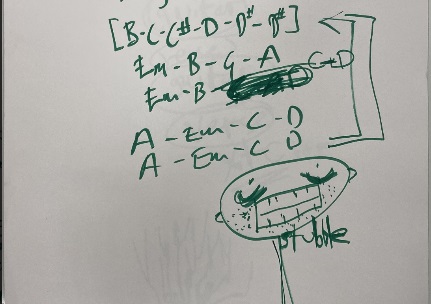 [B-C-C#-D-D#-D#]
Em-B-G-A
Em-B- C-D
A-Em-C-D
A-Em-C D
stubble